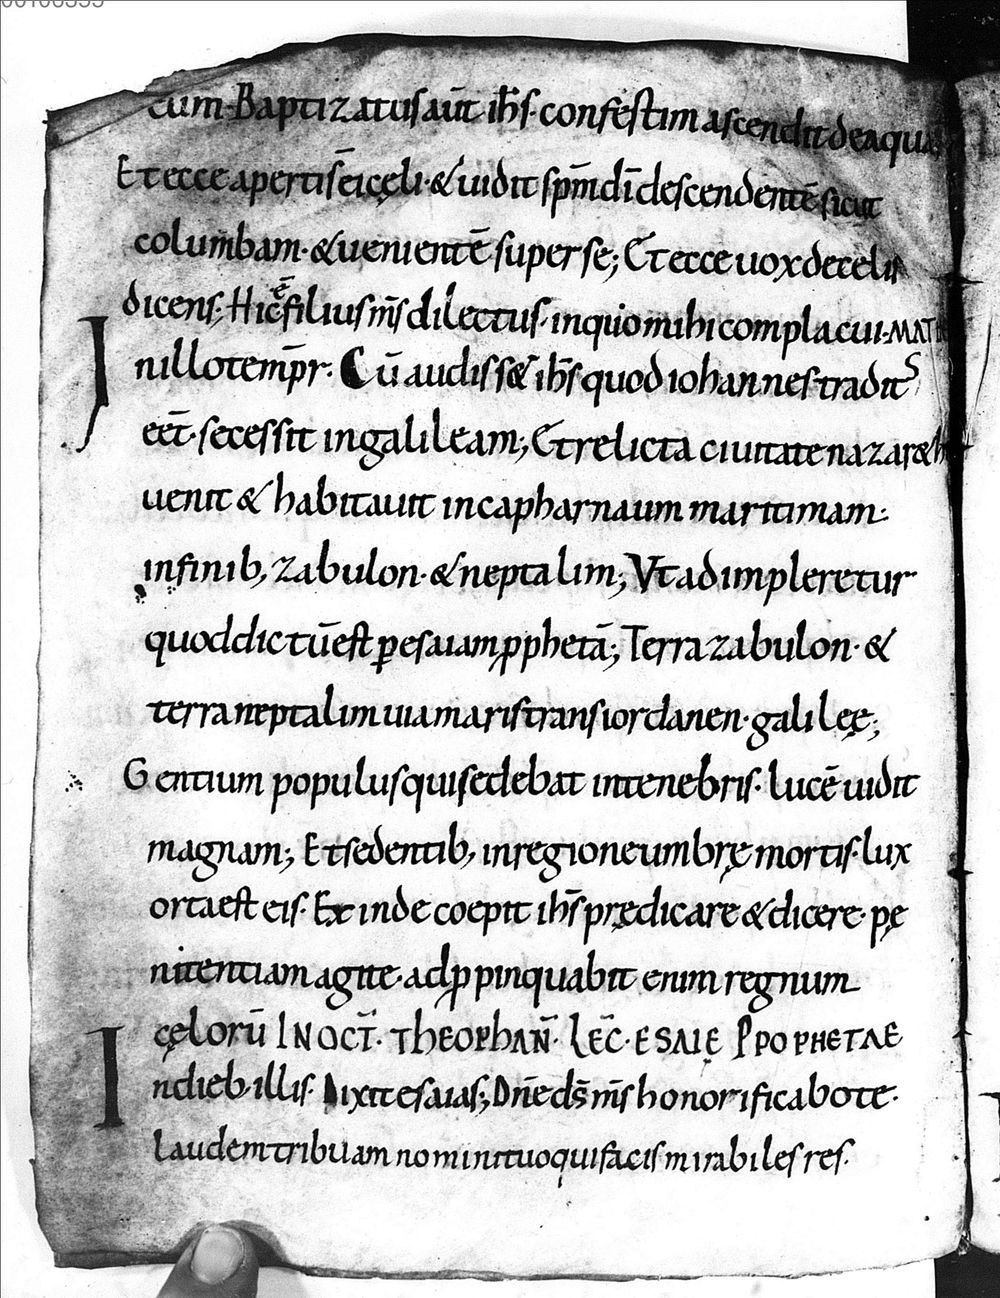 cum· Baptizatus aūt ih̄s· confestim ascendit de aqua
Et ecce aperti st̄ ei cęli· & uidit sp̄m dī descendentē sicut
columbam· & uenientē super se; Et ecce uox de celis
dicens; Hic ē filius m̄s dilectus· in quo mihi complacui· MATH
In illo temp̄r· Cū audiss& ih̄s quod iohannes tradit͛
eēt· secessit in galileam; Et relicta ciuitate nazar&h
uenit & habitauit in capharnaum maritimam·
in finib; zabulon· & neptalim; Vt adimpleretur
quod dictū est ꝑ esaiam ꝓphetā; Terra zabulon· &
terra neptalim uia maris trans iordanen· galileę;
Gentium populus qui sedebat in tenebris· lucē uidit
magnam; Et sedentib; in regione umbrę mortis· lux
orta est eis· Ex inde coepit ih̄s prędicare & dicere· pę
nitentiam agite· adꝓpinquabit enim regnum
cęlorū IN OCT̄· THEOPHAN̄· LEC̄· ESAIĘ PROPHETAE
In dieb· illis· Dixit esaias; Dn̄e ds̄ m̄s honorificabo te·
laudem tribuam nomini tuo qui facis mirabiles res·